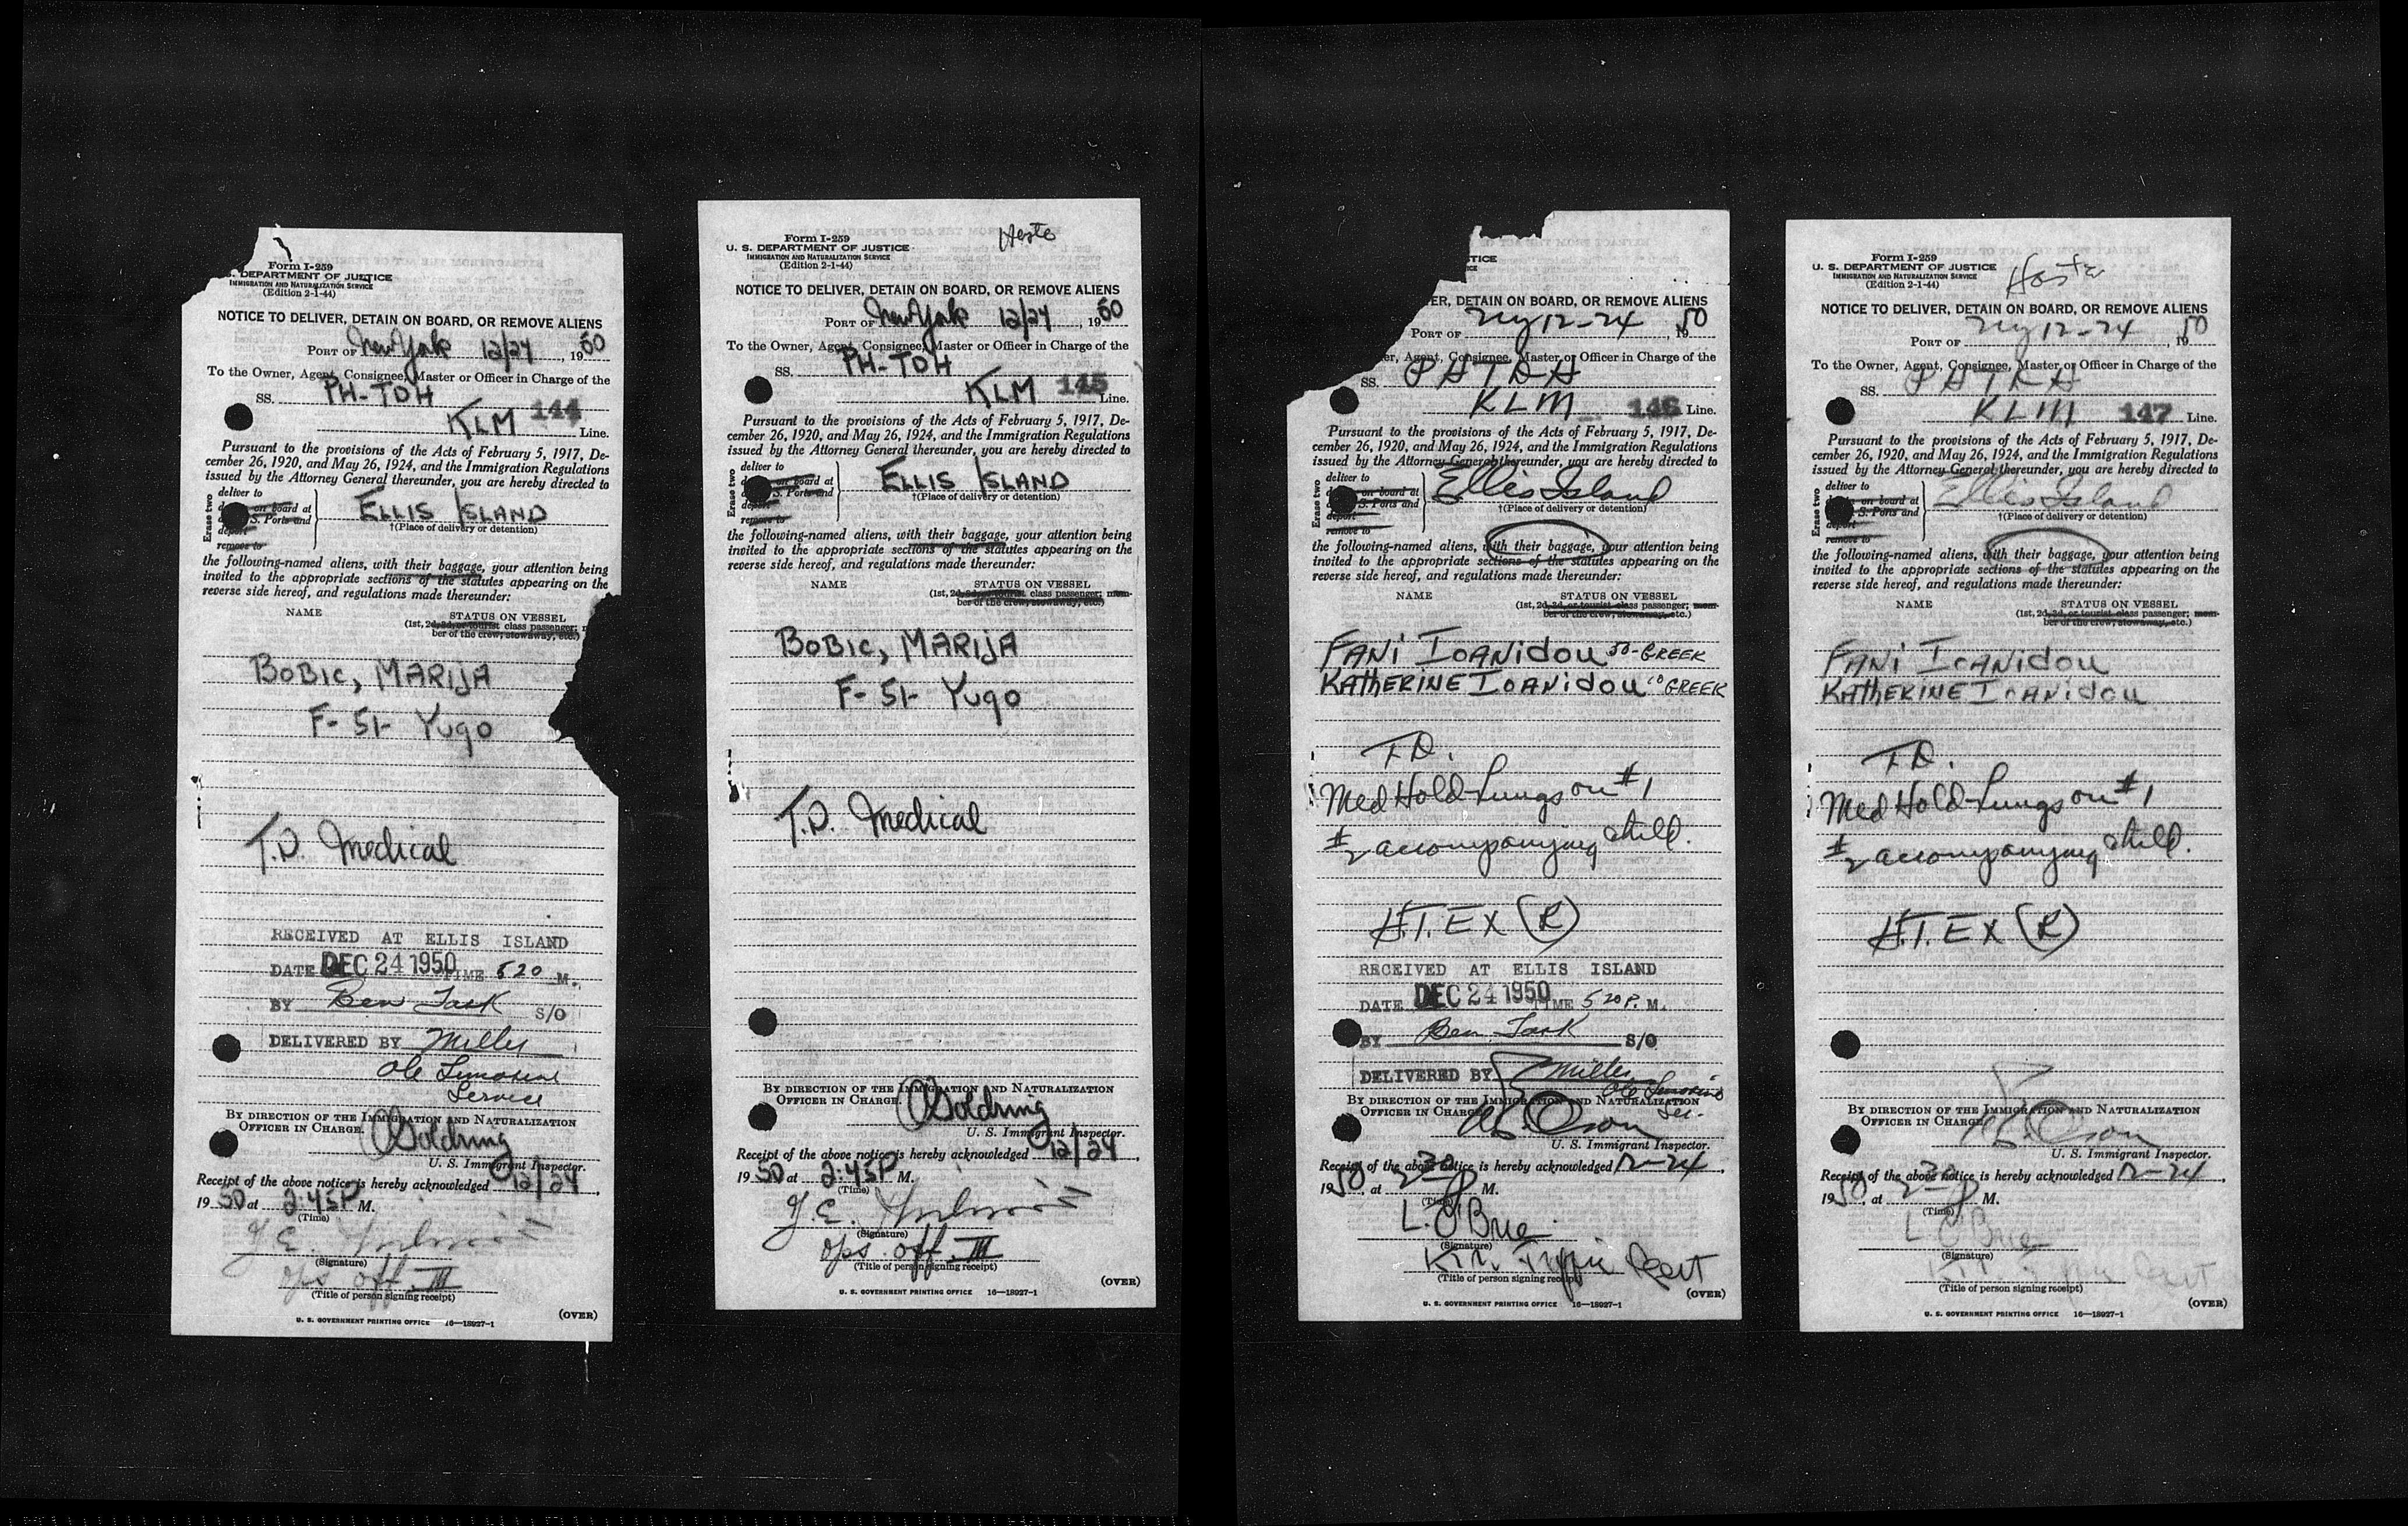 Form I-259
DEPARTMENT OF JUSTICE
IMMIGRATION AND NATURALIZATION SERVICE
(Edition 2-1-44)
NOTICE TO DELIVER, DETAIN ON BOARD, OR REMOVE ALIENS
PORT OF New York 12/24, 1950
To the Owner, Agent, Consignee, Master or Officer in Charge of the
SS. PH-TDH
KLM 144 Line.
Pursuant to the provisions of the Acts of February 5, 1917, De-
cember 26, 1920, and May 26, 1924, and the Immigration Regulations
issued by the Attorney General thereunder, you are hereby directed to
Erase two
deliver to
on board at
S. Ports and
deport
remove to
ELLIS ISLAND
†(Place of delivery or detention)
the following-named aliens, with their baggage, your attention being
invited to the appropriate sections of the statutes appearing on the
reverse side hereof, and regulations made thereunder:
NAME STATUS ON VESSEL
(1st, 2d, 3d, or tourist class passenger;
ber of the crew, stowaway, etc.)
BOBIC, MARIJA
F- 51- Yugo
T.D. Medical
RECEIVED AT ELLIS ISLAND
DATE DEC 24 1950 TIME 520 M.
BY Ben Task S/O
DELIVERED BY Miller
Service
BY DIRECTION OF THE IMMIGRATION AND NATURALIZATION
OFFICER IN CHARGE.
Goldring
U. S. Immigrant Inspector.
Receipt of the above notice is hereby acknowledged 12/24,
1950 at 2:45P M.
(Time)
(Signature)
ops off III
(Title of person signing receipt)
(OVER)
U. S. GOVERNMENT PRINTING OFFICE 16—18927-1
Form I-259
U. S. DEPARTMENT OF JUSTICE
IMMIGRATION AND NATURALIZATION SERVICE
(Edition 2-1-44)
NOTICE TO DELIVER, DETAIN ON BOARD, OR REMOVE ALIENS
PORT OF New York 12/24, 1950
To the Owner, Agent, Consignee, Master or Officer in Charge of the
SS. PH-TDH
KLM 145 Line.
Pursuant to the provisions of the Acts of February 5, 1917, De-
cember 26, 1920, and May 26, 1924, and the Immigration Regulations
issued by the Attorney General thereunder, you are hereby directed to
Erase two
deliver to
on board at
S. Ports and
remove to
ELLIS ISLAND
†(Place of delivery or detention)
the following-named aliens, with their baggage, your attention being
invited to the appropriate sections of the statutes appearing on the
reverse side hereof, and regulations made thereunder:
NAME STATUS ON VESSEL
(1st, 2d, 3d, or tourist class passenger; mem-
ber of the crew, stowaway, etc.)
BOBIC, MARIJA
F- 51- Yugo
T.D. Medical
BY DIRECTION OF THE IMMIGRATION AND NATURALIZATION
OFFICER IN CHARGE.
Goldring
U. S. Immigrant Inspector.
Receipt of the above notice is hereby acknowledged 12/24,
1950 at 2:45P M.
(Time)
(Signature)
ops off III
(Title of person signing receipt)
(OVER)
U. S. GOVERNMENT PRINTING OFFICE 16—18927-1
TICE
ER, DETAIN ON BOARD, OR REMOVE ALIENS
PORT OF NY 12-24, 1950
er, Agent, Consignee, Master or Officer in Charge of the
SS. PHTDH
KLM 146 Line.
Pursuant to the provisions of the Acts of February 5, 1917, De-
cember 26, 1920, and May 26, 1924, and the Immigration Regulations
issued by the Attorney General thereunder, you are hereby directed to
Erase two
deliver to
on board at
S. Ports and
deport
remove to
Ellis Island
†(Place of delivery or detention)
the following-named aliens, with their baggage, your attention being
invited to the appropriate sections of the statutes appearing on the
reverse side hereof, and regulations made thereunder:
NAME STATUS ON VESSEL
(1st, 2d, 3d, or tourist class passenger; mem-
ber of the crew, stowaway, etc.)
FANI IOANIDOU 50-GREEK
KATHERINE IOANIDOU 10 GREEK
T.D.
Med Hold-Lungs on #1
#2 accompanying child.
H.T. EX (R)
RECEIVED AT ELLIS ISLAND
DATE DEC 24 1950 TIME 520 P. M.
BY Ben Task S/O
DELIVERED BY Miller
BY DIRECTION OF THE IMMIGRATION AND NATURALIZATION
OFFICER IN CHARGE
U. S. Immigrant Inspector.
Receipt of the above notice is hereby acknowledged 12-24,
1950, at 230 P M.
(Time)
L. O'Brie
(Signature)
(Title of person signing receipt)
(OVER)
U. S. GOVERNMENT PRINTING OFFICE 16—18927-1
Form I-259
U. S. DEPARTMENT OF JUSTICE
IMMIGRATION AND NATURALIZATION SERVICE
(Edition 2-1-44)
NOTICE TO DELIVER, DETAIN ON BOARD, OR REMOVE ALIENS
PORT OF NY 12-24, 1950
To the Owner, Agent, Consignee, Master or Officer in Charge of the
SS. PHTDH
KLM 147 Line.
Pursuant to the provisions of the Acts of February 5, 1917, De-
cember 26, 1920, and May 26, 1924, and the Immigration Regulations
issued by the Attorney General thereunder, you are hereby directed to
Erase two
deliver to
on board at
S. Ports and
deport
remove to
Ellis Island
†(Place of delivery or detention)
the following-named aliens, with their baggage, your attention being
invited to the appropriate sections of the statutes appearing on the
reverse side hereof, and regulations made thereunder:
NAME STATUS ON VESSEL
(1st, 2d, 3d, or tourist class passenger; mem-
ber of the crew, stowaway, etc.)
FANI IOANIDOU
KATHERINE IOANIDOU
T.D.
Med Hold-Lungs on #1
#2 accompanying child.
H.T. EX (R)
BY DIRECTION OF THE IMMIGRATION AND NATURALIZATION
OFFICER IN CHARGE
U. S. Immigrant Inspector.
Receipt of the above notice is hereby acknowledged 12-24,
1950, at 230 P M.
(Time)
L. O'Brie
(Signature)
(Title of person signing receipt)
(OVER)
U. S. GOVERNMENT PRINTING OFFICE 16—18927-1